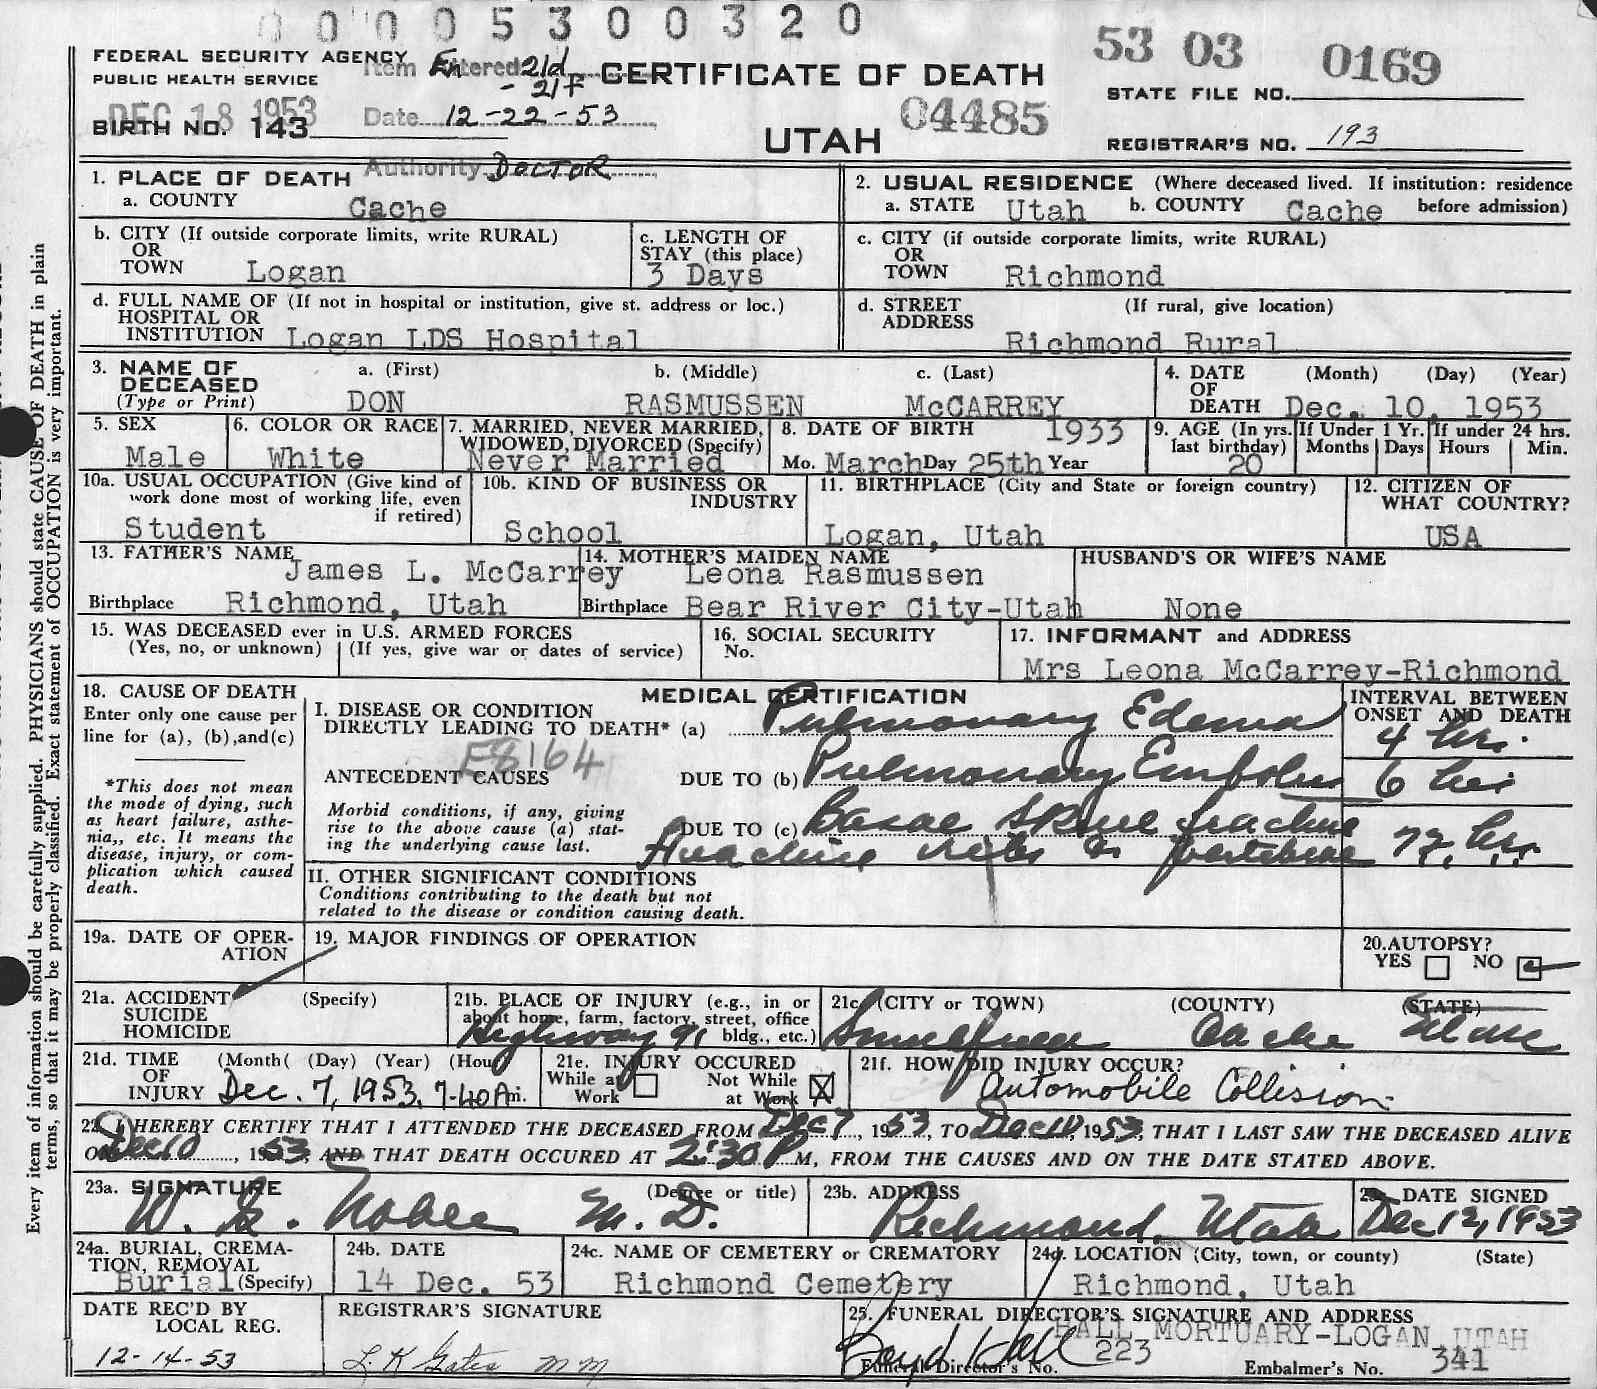 0 0 0 0 5 3 0 0 3 2 0
53 03 0169
FEDERAL SECURITY AGENCY
PUBLIC HEALTH SERVICE
Item Entered 21d - 21f
CERTIFICATE OF DEATH
STATE FILE NO.
DEC 18 1953
BIRTH NO. 143
Date 12-22-53
04485
UTAH
REGISTRAR'S NO. 193
Authority DOCTOR
1. PLACE OF DEATH
a. COUNTY Cache
2. USUAL RESIDENCE (Where deceased lived. If institution: residence before admission)
a. STATE Utah b. COUNTY Cache
b. CITY (If outside corporate limits, write RURAL)
OR
TOWN Logan
c. LENGTH OF
STAY (this place)
3 Days
c. CITY (if outside corporate limits, write RURAL)
OR
TOWN Richmond
d. FULL NAME OF (If not in hospital or institution, give st. address or loc.)
HOSPITAL OR
INSTITUTION Logan LDS Hospital
d. STREET (If rural, give location)
ADDRESS
Richmond Rural
3. NAME OF
DECEASED
(Type or Print)
a. (First) b. (Middle) c. (Last)
DON RASMUSSEN McCARREY
4. DATE (Month) (Day) (Year)
OF
DEATH Dec. 10, 1953
5. SEX
Male
6. COLOR OR RACE
White
7. MARRIED, NEVER MARRIED,
WIDOWED, DIVORCED (Specify)
Never Married
8. DATE OF BIRTH 1933
Mo. March Day 25th Year
9. AGE (In yrs. last birthday)
20
If Under 1 Yr.
Months Days
If under 24 hrs.
Hours Min.
10a. USUAL OCCUPATION (Give kind of
work done most of working life, even
if retired)
Student
10b. KIND OF BUSINESS OR
INDUSTRY
School
11. BIRTHPLACE (City and State or foreign country)
Logan, Utah
12. CITIZEN OF
WHAT COUNTRY?
USA
13. FATHER'S NAME
James L. McCarrey
Birthplace Richmond, Utah
14. MOTHER'S MAIDEN NAME
Leona Rasmussen
Birthplace Bear River City-Utah
HUSBAND'S OR WIFE'S NAME
None
15. WAS DECEASED ever in U.S. ARMED FORCES
(Yes, no, or unknown) (If yes, give war or dates of service)
16. SOCIAL SECURITY
No.
17. INFORMANT and ADDRESS
Mrs Leona McCarrey-Richmond
18. CAUSE OF DEATH
Enter only one cause per
line for (a), (b), and (c)
*This does not mean
the mode of dying, such
as heart failure, asthe-
nia,, etc. It means the
disease, injury, or com-
plication which caused
death.
MEDICAL CERTIFICATION
INTERVAL BETWEEN
ONSET AND DEATH
I. DISEASE OR CONDITION
DIRECTLY LEADING TO DEATH* (a) Pulmonary Edema 4 hrs.
E8164
ANTECEDENT CAUSES
DUE TO (b) Pulmonary Embolus 6 hrs
Morbid conditions, if any, giving
rise to the above cause (a) stat-
ing the underlying cause last.
DUE TO (c) Basal Skull fracture
Fracture ribs & vertebrae 72 hrs.
II. OTHER SIGNIFICANT CONDITIONS
Conditions contributing to the death but not
related to the disease or condition causing death.
19a. DATE OF OPER-
ATION
19. MAJOR FINDINGS OF OPERATION
20. AUTOPSY?
YES NO
21a. ACCIDENT (Specify)
SUICIDE
HOMICIDE
21b. PLACE OF INJURY (e.g., in or
about home, farm, factory, street, office
bldg., etc.)
Highway 91
21c. (CITY or TOWN) (COUNTY) (STATE)
Smithfield Cache Utah
21d. TIME (Month( (Day) (Year) (Hour)
OF
INJURY Dec. 7, 1953, 7:40 A m.
21e. INJURY OCCURED
While at Work Not While at Work X
21f. HOW DID INJURY OCCUR?
Automobile Collision
22. I HEREBY CERTIFY THAT I ATTENDED THE DECEASED FROM Dec 7, 1953, TO Dec 10, 1953, THAT I LAST SAW THE DECEASED ALIVE
ON Dec 10, 1953, AND THAT DEATH OCCURED AT 2:30 P M, FROM THE CAUSES AND ON THE DATE STATED ABOVE.
23a. SIGNATURE (Degree or title)
M.D.
23b. ADDRESS
Richmond, Utah
DATE SIGNED
Dec 12, 1953
24a. BURIAL, CREMA-
TION, REMOVAL
Burial (Specify)
24b. DATE
14 Dec. 53
24c. NAME OF CEMETERY or CREMATORY
Richmond Cemetery
24d. LOCATION (City, town, or county) (State)
Richmond, Utah
DATE REC'D BY
LOCAL REG.
12-14-53
REGISTRAR'S SIGNATURE
25. FUNERAL DIRECTOR'S SIGNATURE AND ADDRESS
HALL MORTUARY-LOGAN, UTAH
Boyd Hall
Funeral Director's No. 223
Embalmer's No. 341
Every item of information should be carefully supplied. PHYSICIANS should state CAUSE OF DEATH in plain
terms, so that it may be properly classified. Exact statement of OCCUPATION is very important.